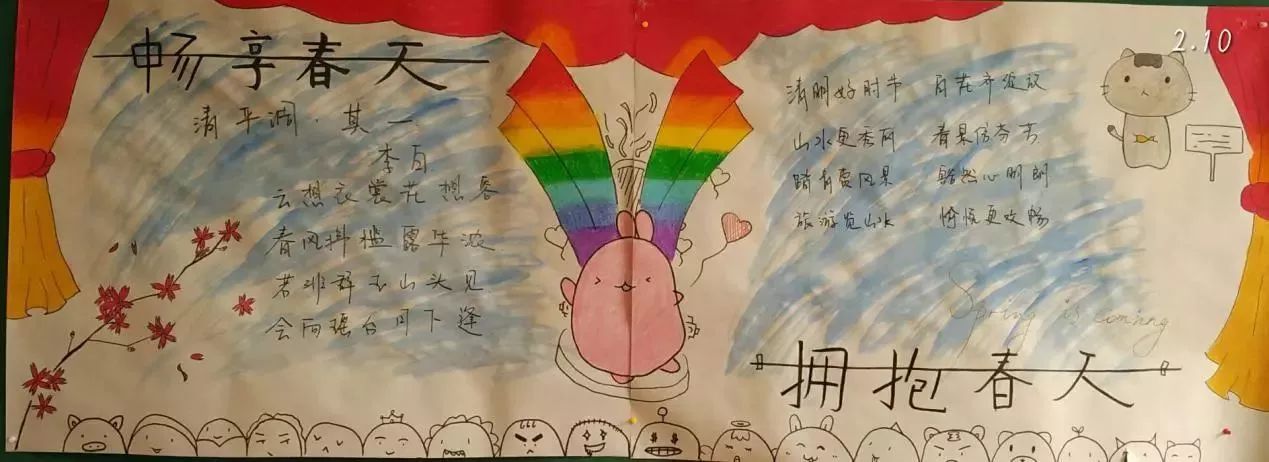 畅享春天
清平调·其一
李白
云想衣裳花想容
春风拂槛露华浓
若非群玉山头见
会向瑶台月下逢
2.10
清明好时节 百花齐发放
山水更秀丽 春景仿芬芳
踏青赏风景 豁然心明朗
旅游览山水 愉悦更欢畅
Spring is coming
拥抱春天